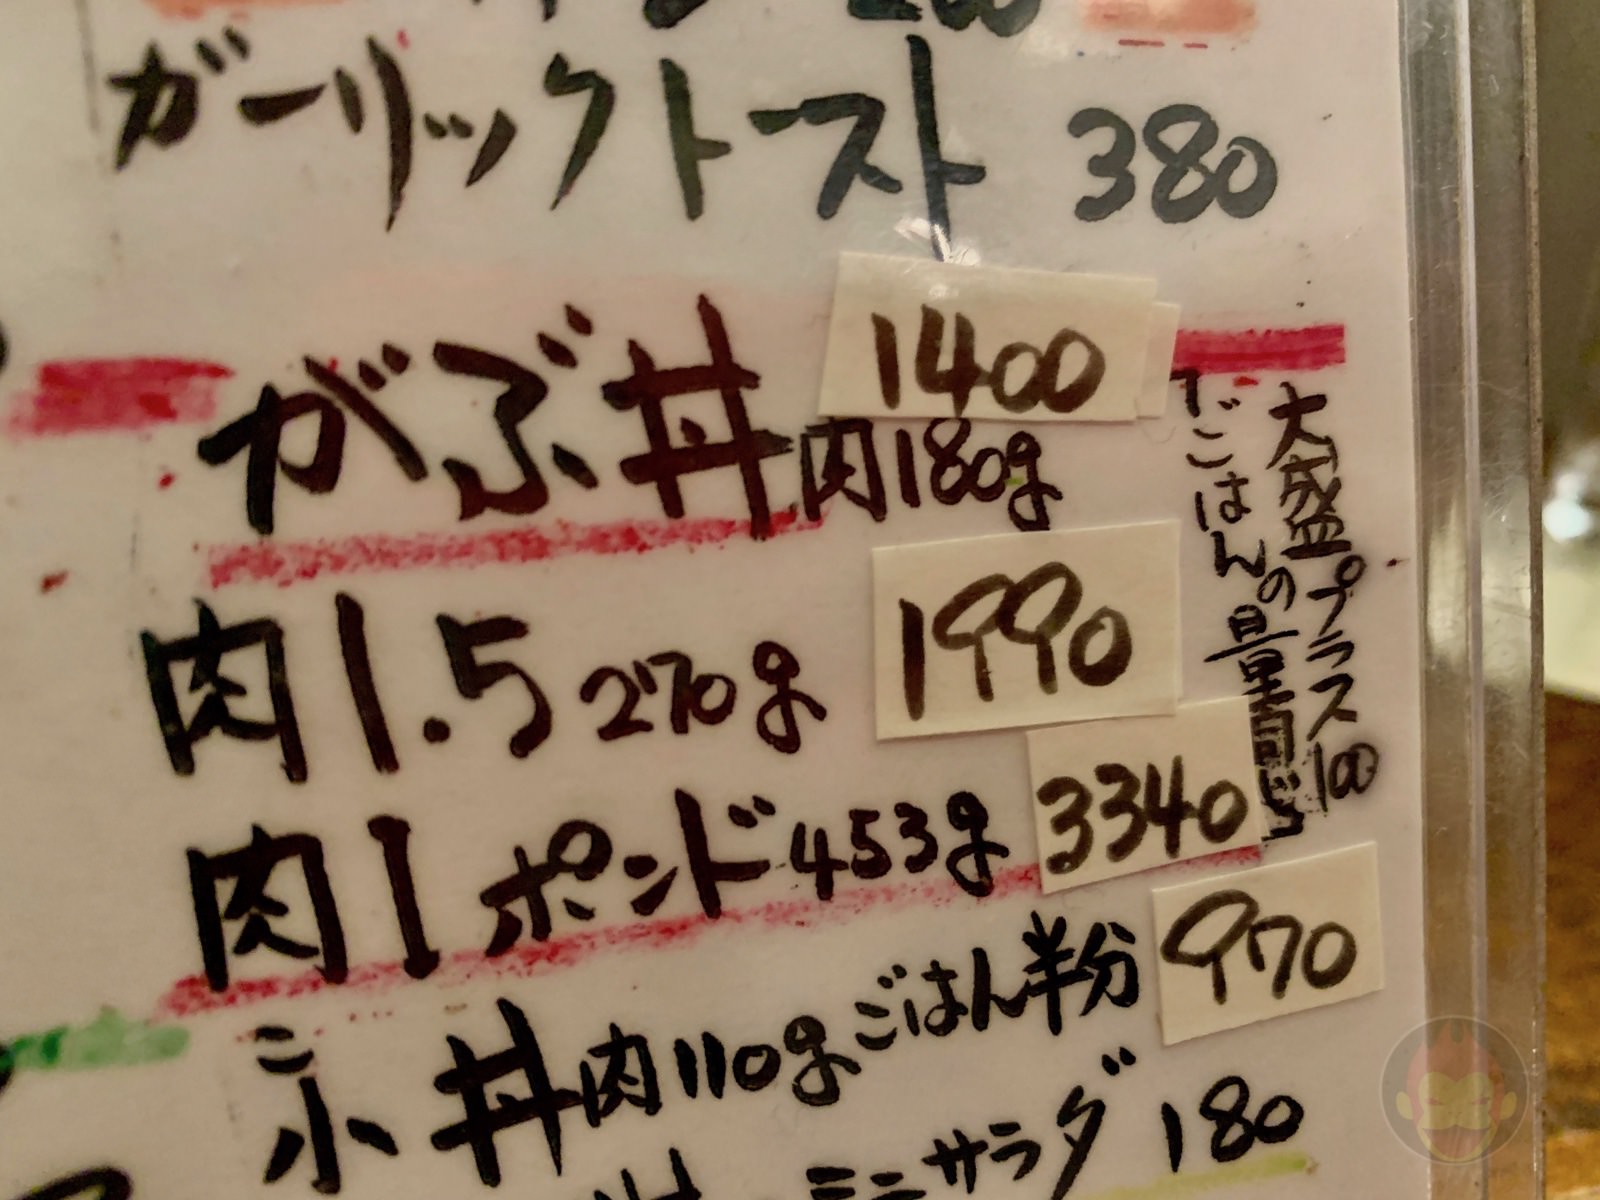 ガーリックトースト 380
がぶ丼 1400
肉180g
肉1.5 270g 1990
肉1ポンド 453g 3340
こ
小丼 肉110g ごはん半分 970
ミニサラダ 180
大盛プラス100
ごはんの量同じ